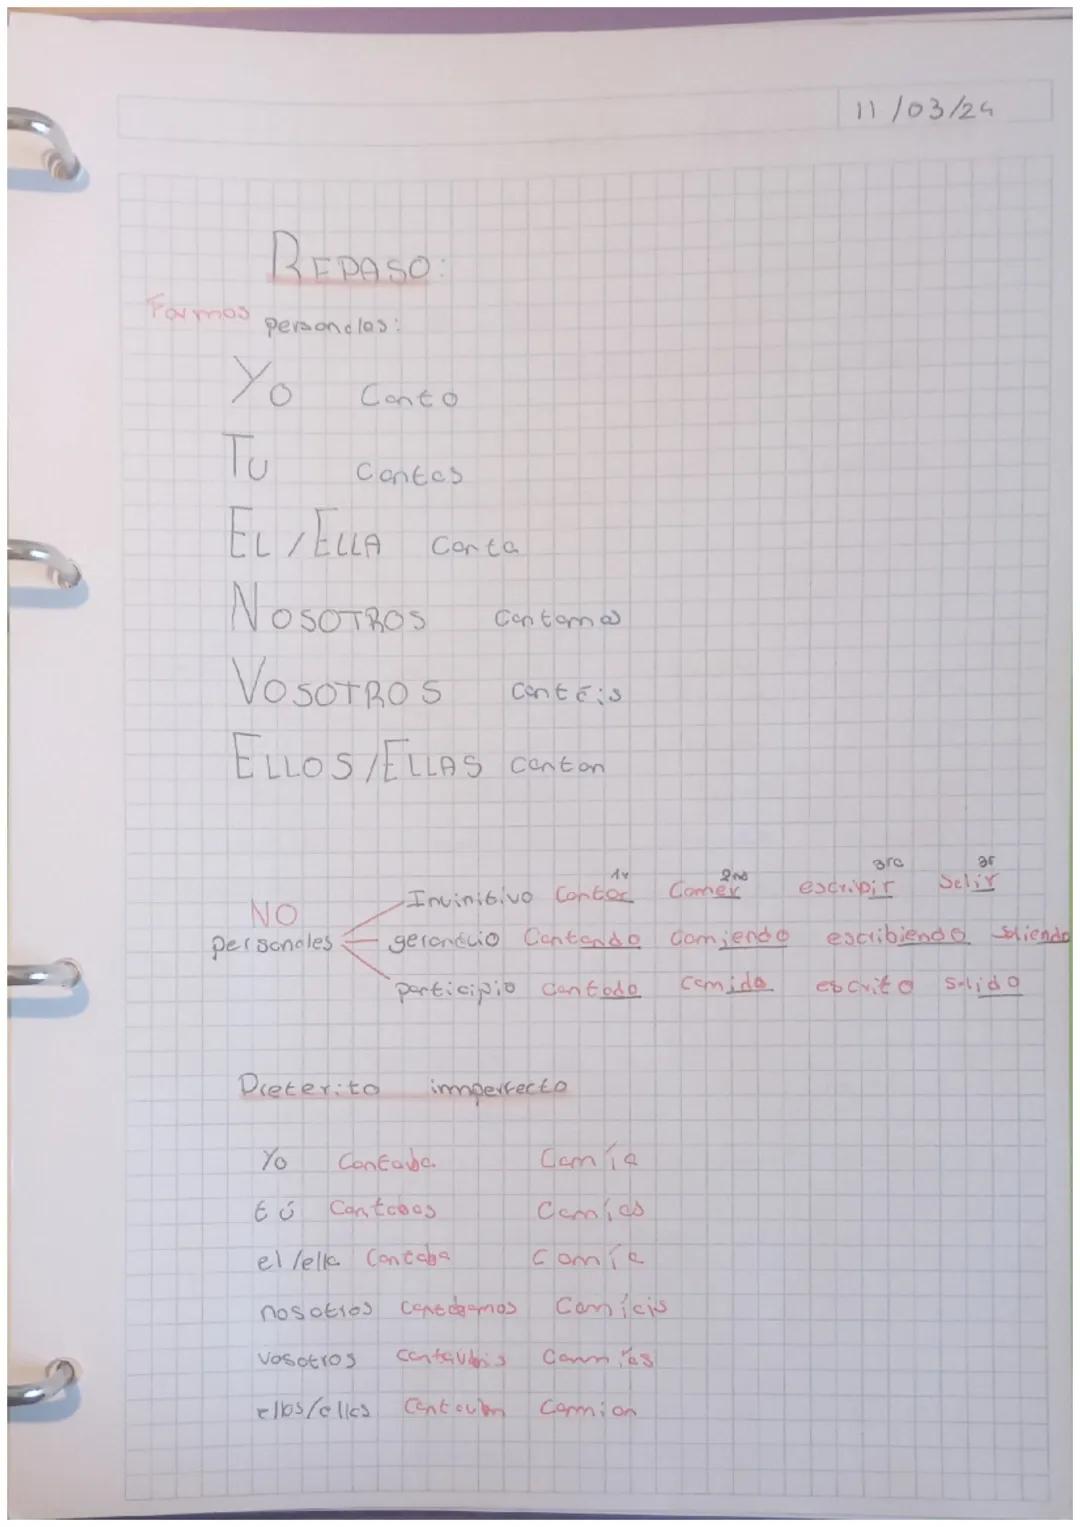 11/03/24
REPASO:
Formas personales:
Yo Canto
Tu Cantas
EL/ELLA Canta
NOSOTROS Cantamos
VOSOTROS Cantéis
ELLOS/ELLAS Cantan
1r 2nd 3ra 3r
Invinitivo Cantar Comer escripir Salir
NO
personales gerontcio Cantando Comiendo escribiendo saliendo
participio Cantado Comido escrito Salido
Preterito immperfecto
Yo Cantaba Comía
tú Cantabas Comías
el/ella Cantaba Comía
nosotros Comíais
vosotros
ellos/ellas Comian